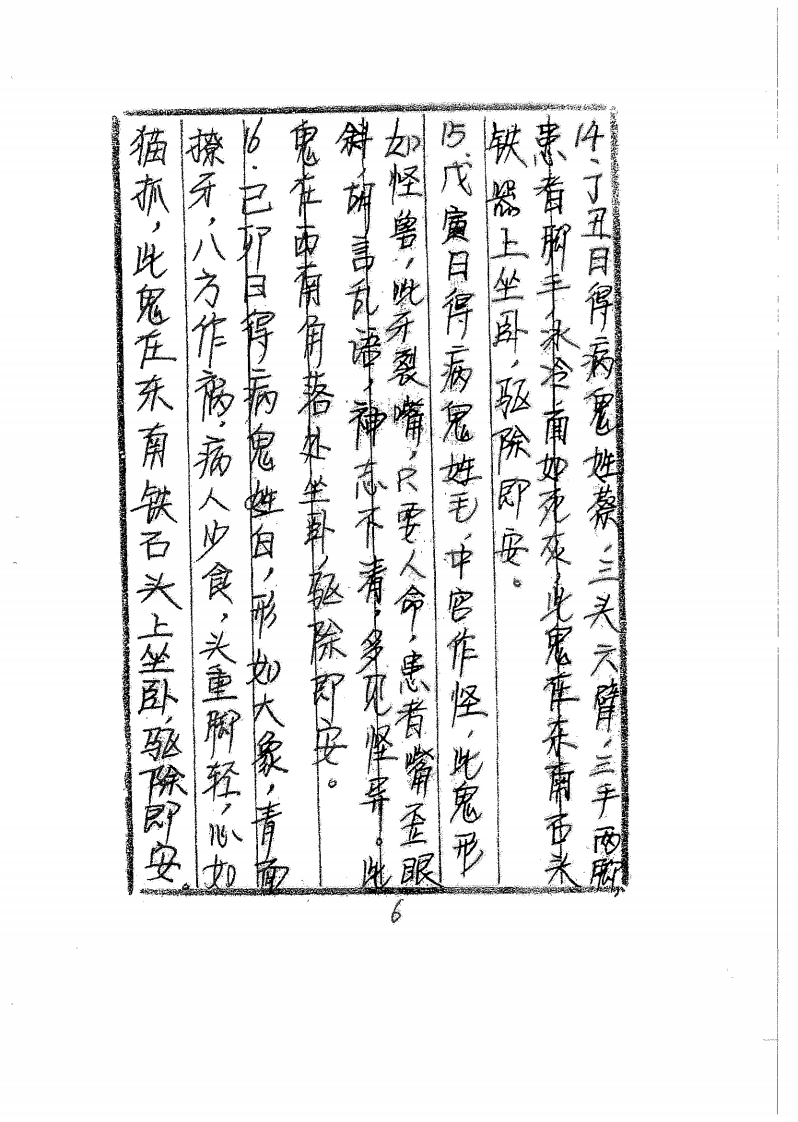 14、丁丑日得病鬼姓蔡，三头六臂，三手两脚，
患者脚手冰冷面如死灰，此鬼在东南石头
铁器上坐卧，驱除即安。
15、戊寅日得病鬼姓毛，中宫作怪，此鬼形
如怪兽，呲牙裂嘴，只要人命，患者嘴歪眼
斜，胡言乱语，神志不清，多见怪异。此
鬼在西南角落处坐卧，驱除即安。
16．己卯日得病鬼姓白，形如大象，青面
撩牙，八方作祸，病人少食，头重脚轻，心如
猫抓，此鬼在东南铁石头上坐卧，驱除即安。
6